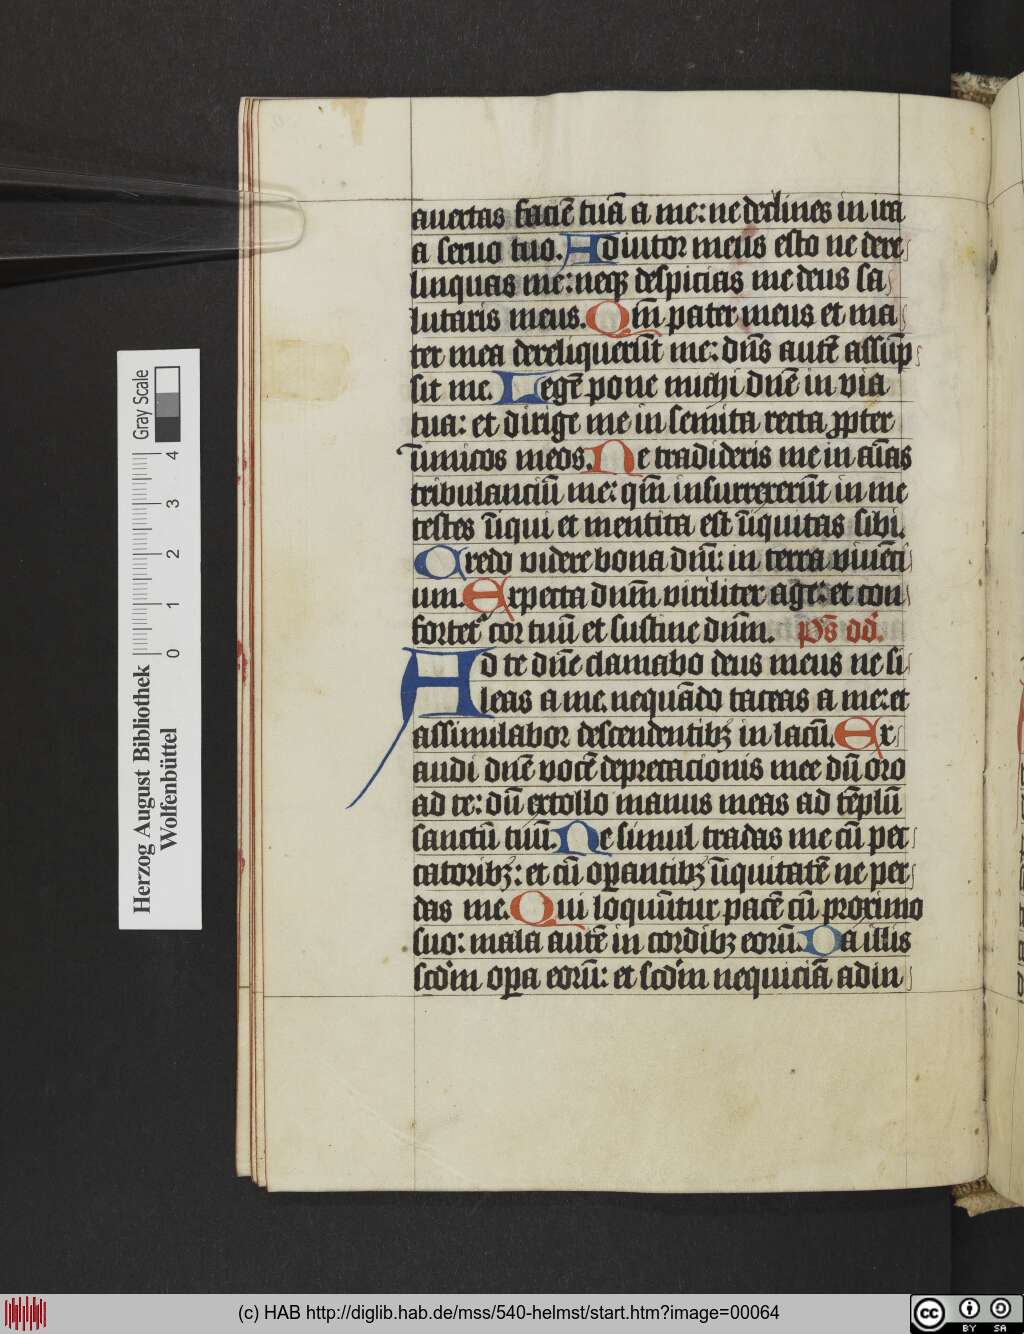 auertas faciē tuā a me: ne declines in ira
a seruo tuo. Adiutor meus esto ne dere
linquas me: neqꝫ despicias me deus sa
lutaris meus. Qm̄ pater meus et ma
ter mea dereliquerūt me: dn̄s autē assūp
sit me. Legē pone michi dn̄e in via
tua: et dirige me in semita recta ꝓpter
īimicos meos. Ne tradideris me in aīas
tribulanciū me: qm̄ insurrexerūt in me
testes īiqui et mentita est īiquitas sibi.
Credo videre bona dn̄i: in terra viuēti
um. Expecta dn̄m viriliter age: et con
fortet᷑ cor tuū et sustine dn̄m. Ps̄ dd̄.
Ad te dn̄e clamabo deus meus ne si
leas a me. nequādo taceas a me: et
assimilabor descendentibꝫ in lacū. Ex
audi dn̄e vocē deprecacionis mee dū oro
ad te: dū extollo manus meas ad tēplū
sanctū tuū. Ne simul tradas me cū pec
catoribꝫ: et cū oꝑantibꝫ īiquitatē ne per
das me. Qui loquūtur pacē cū proximo
suo: mala autē in cordibꝫ eorū. Da illis
scd̄m oꝑa eorū: et scd̄m nequiciā adin
Herzog August Bibliothek
Wolfenbüttel
0 1 2 3 4
Gray Scale
(c) HAB http://diglib.hab.de/mss/540-helmst/start.htm?image=00064
cc BY SA